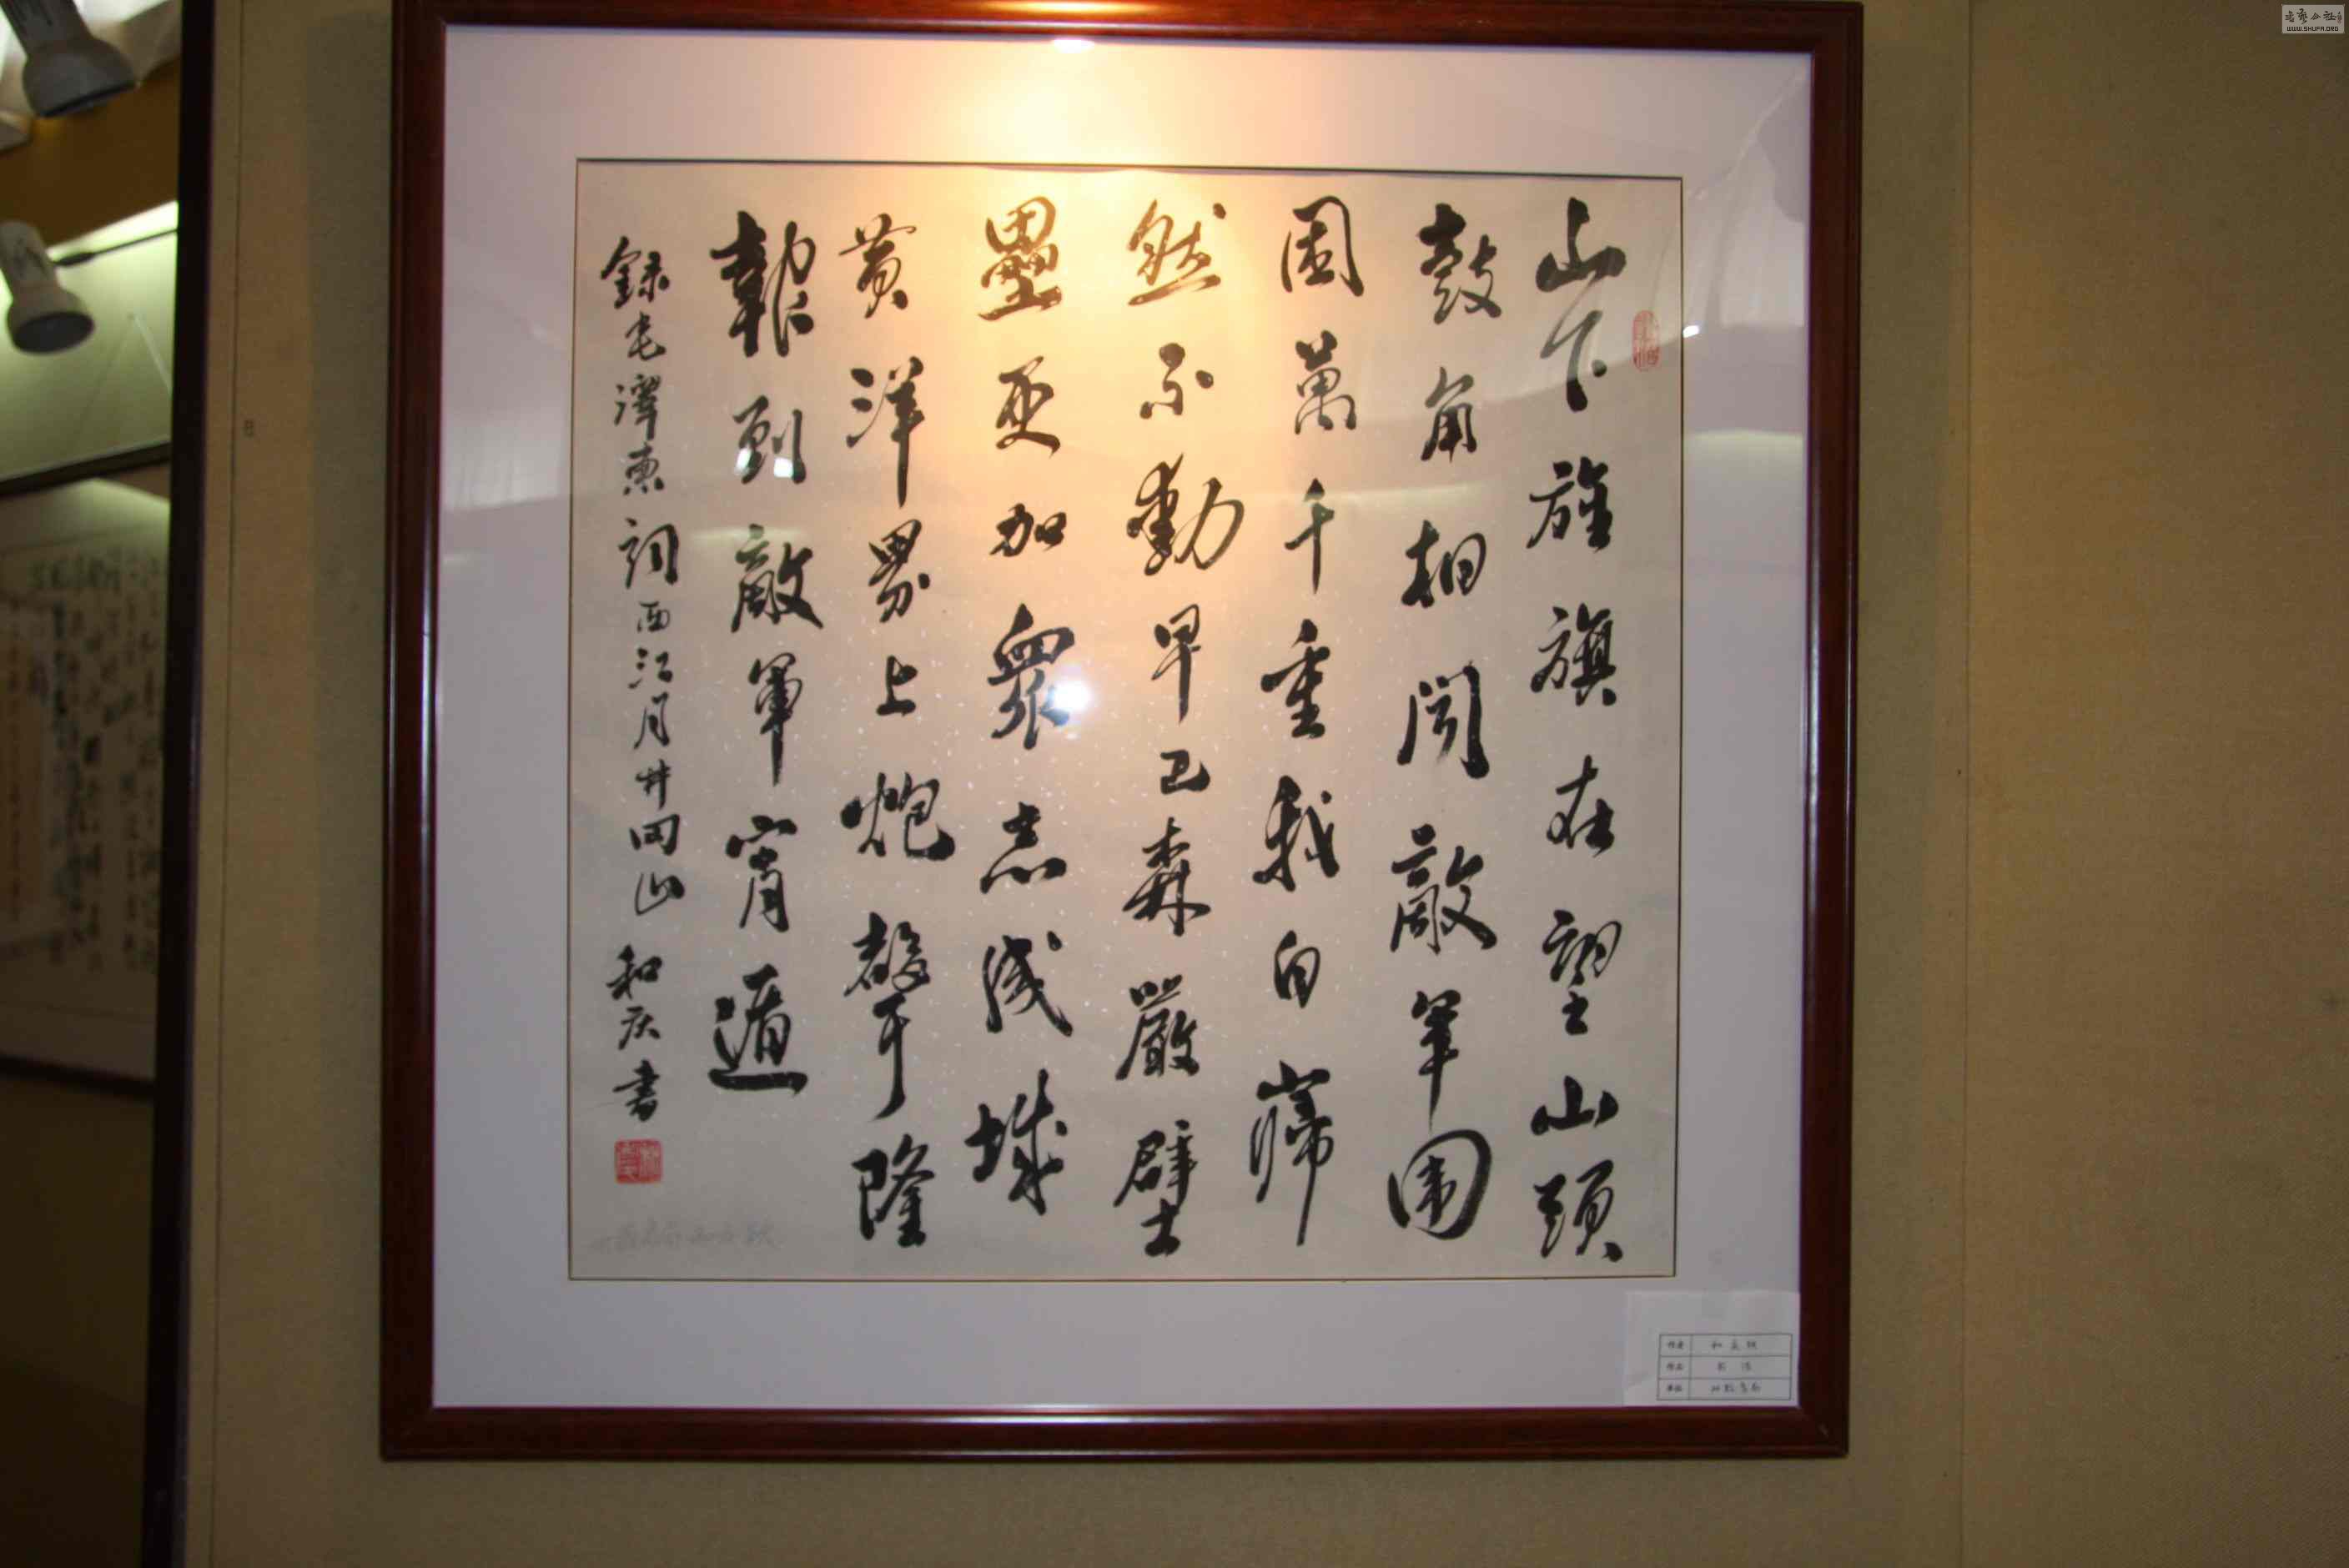 山下旌旗在望山頭
鼓角相聞敵軍圍
困萬千重我自歸
然不動早已森嚴壁
壘更加眾志成城
黃洋界上炮聲隆
報到敵軍宵遁
錄毛澤東詞西江月井岡山 和庆書
作者
作品 书法
WWW.SHUFA.ORG